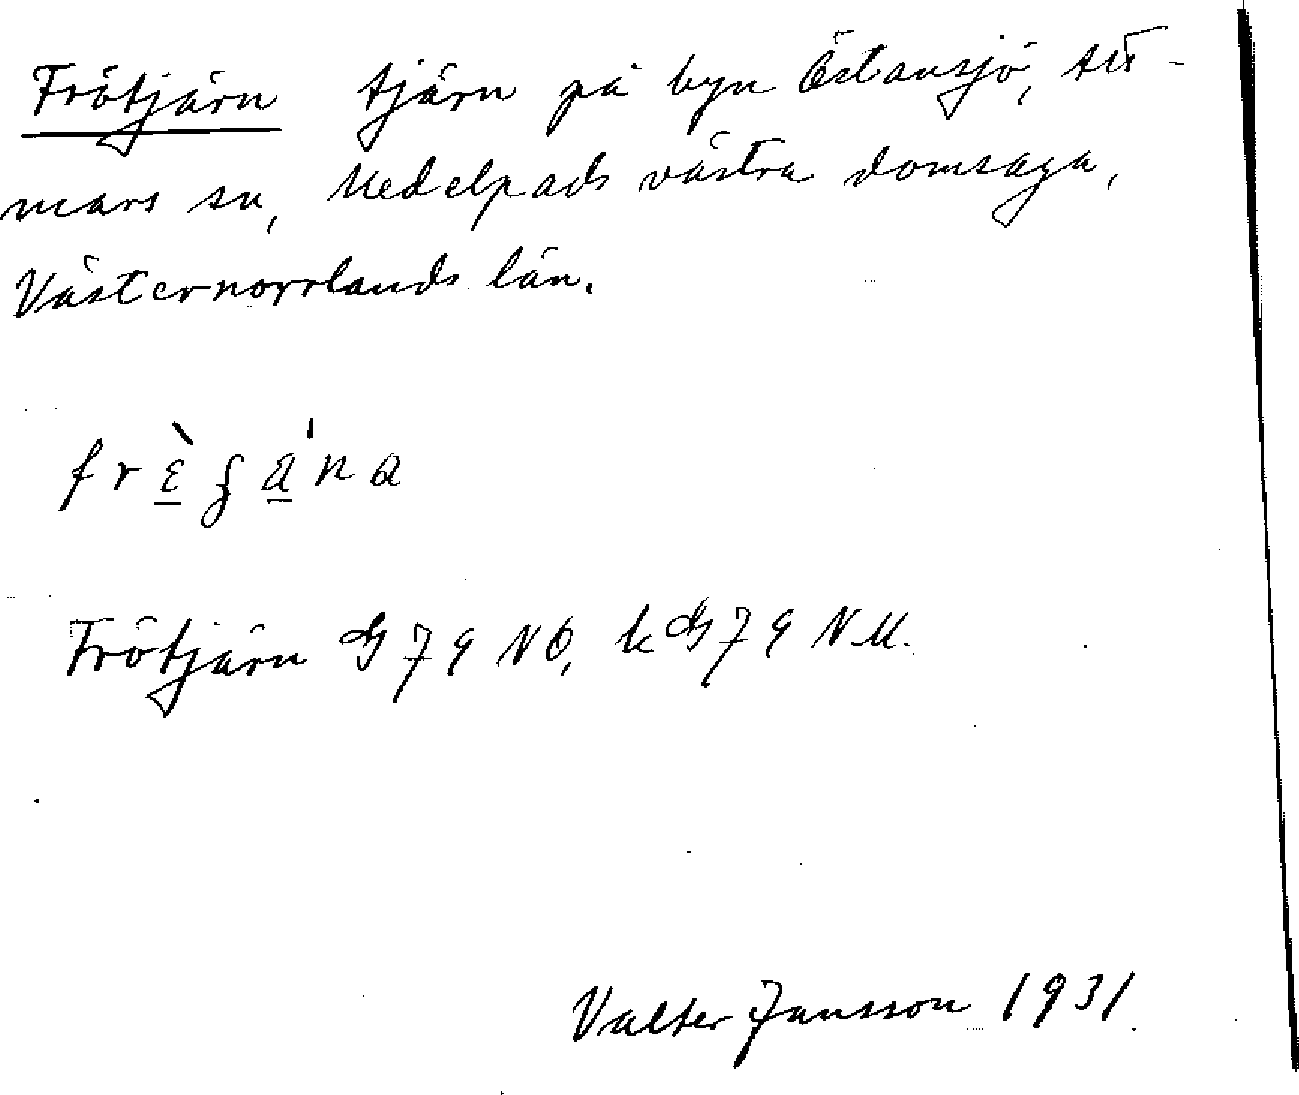 Frötjärn tjärn på byn Östansjö, Att-
mars sn, Medelpads västra domsaga,
Västernorrlands län.
Frötjärn GJ 79 NO, k GJ 79 NM.
Valter Jansson 1931.